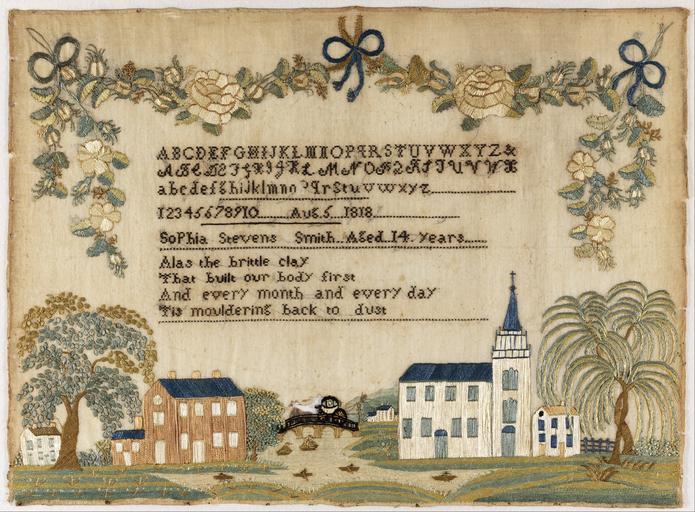 ABCDEFGHIJKLMNOPQRSTUVWXYZ&
abcdefghijklmnopqrstuvwxyz
12345678910 Aug. 5 1818
Sophia Stevens Smith Aged 14 years
Alas the brittle clay
That built our body first
And every month and every day
Tis mouldering back to dust